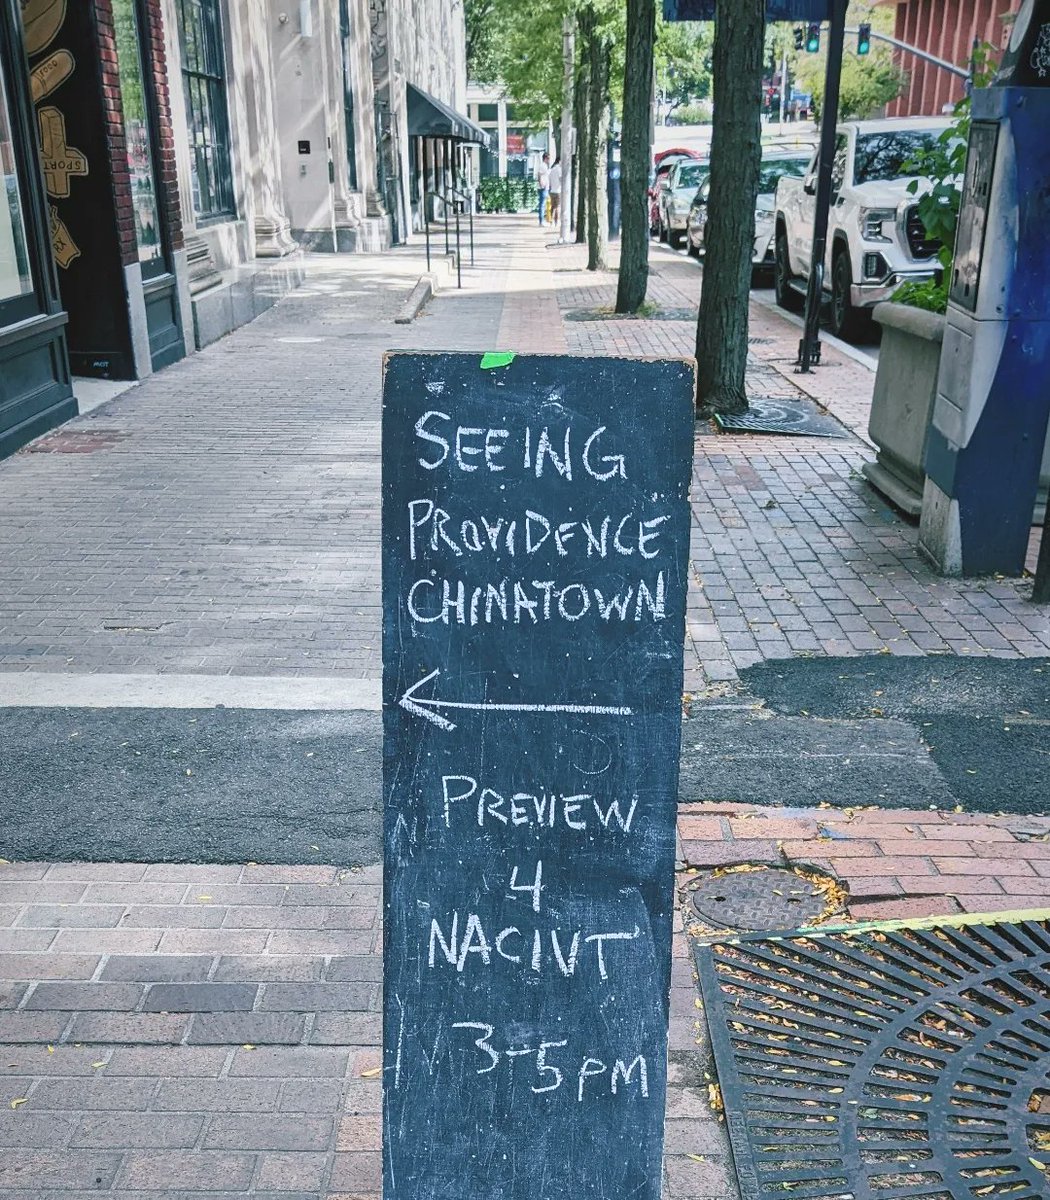 SEEING
PROVIDENCE
CHINATOWN
PREVIEW
4
NACIVT
3-5PM
SPORT